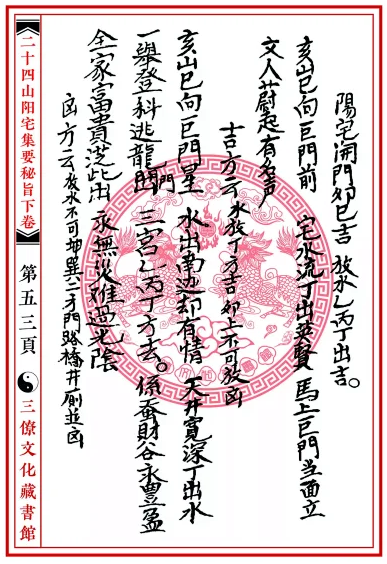 陽宅開門卯巳吉 放水乙丙丁出吉。
亥山巳向巨門前 宅水流丁出英賢 馬上巨門當面立
文人蔚起有名声
吉方云水放丁方吉卯上不可放凶
亥山巳向巨門星 水出南边却有情 天井寬深丁出水
一舉登科逃龍門 三宮乙丙丁方去。係蚕財谷永豊盈
全家富貴従此出 永無災难過光陰
凶方云放水不可坤巽二方門路橋井廁並凶
二十四山阳宅集要秘旨下卷
第五三頁
三僚文化藏書館